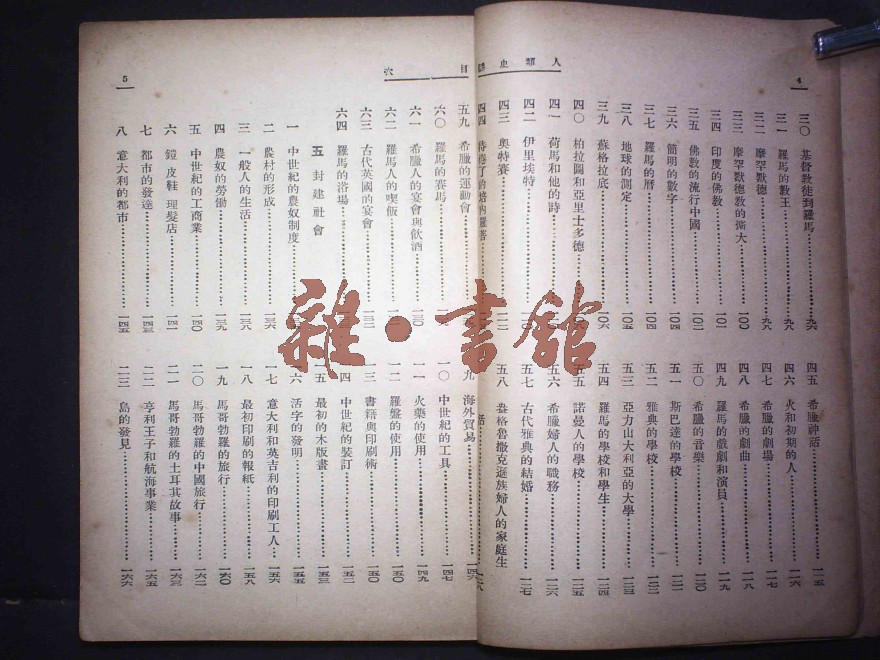 人類史話 目次
4
三〇 基督教徒到羅馬……九六
三一 羅馬的教王……九八
三二 摩罕默德……九八
三三 摩罕默德教的擴大……一〇〇
三四 印度的佛教……一〇一
三五 佛教的流行中國……一〇二
三六 簡明的數字……一〇四
三七 羅馬的曆……一〇四
三八 地球的測定……一〇五
三九 蘇格拉底……一〇六
四〇 柏拉圖和亞里士多德
四一 荷馬和他的詩
四二 伊里埃特
四三 奧特賽
四四
四五 希臘神話……一一五
四六 火和初期的人……一一六
四七 希臘的劇場……一一七
四八 希臘的劇曲……一一八
四九 羅馬的戲劇和演員……一一九
五〇 希臘的音樂……一二〇
五一 斯巴達的學校……一二一
五二 雅典的學校……一二二
五三 亞力山大利亞的大學……一二三
五四 羅馬的學校和學生……一二四
五五 諾曼人的學校……一二五
五六 希臘婦人的職務……一二六
五七 古代雅典的結婚……一二七
五八 盎格魯撒克遜族婦人的家庭生
活……一二八
5
五九 希臘的運動會
六〇 羅馬的賽馬
六一 希臘人的宴會與飲酒……一三〇
六二 羅馬人的喫飯
六三 古代英國的宴會……一三二
六四 羅馬的浴場
五 封建社會
一 中世紀的農奴制度
二 農村的形成……一三六
三 一般人的生活……一三八
四 農奴的勞働……一三九
五 中世紀的工商業……一四〇
六 鎧 皮鞋 理髮店……一四一
七 都市的發達……一四三
八 意大利的都市……一四五
九 海外貿易……一四六
一〇 中世紀的工具……一四七
一一 火藥的使用……一四九
一二 羅盤的使用……一五〇
一三 書籍與印刷術……一五〇
一四 中世紀的裝訂……一五二
一五 最初的木版畫……一五三
一六 活字的發明……一五五
一七 意大利和英吉利的印刷工人……一五六
一八 最初印刷的報紙……一五八
一九 馬哥勃羅的旅行……一六〇
二〇 馬哥勃羅的中國旅行……一六一
二一 馬哥勃羅的土耳其故事……一六三
二二 亨利王子和航海事業……一六五
二三 島的發見……一六六
雜·書館